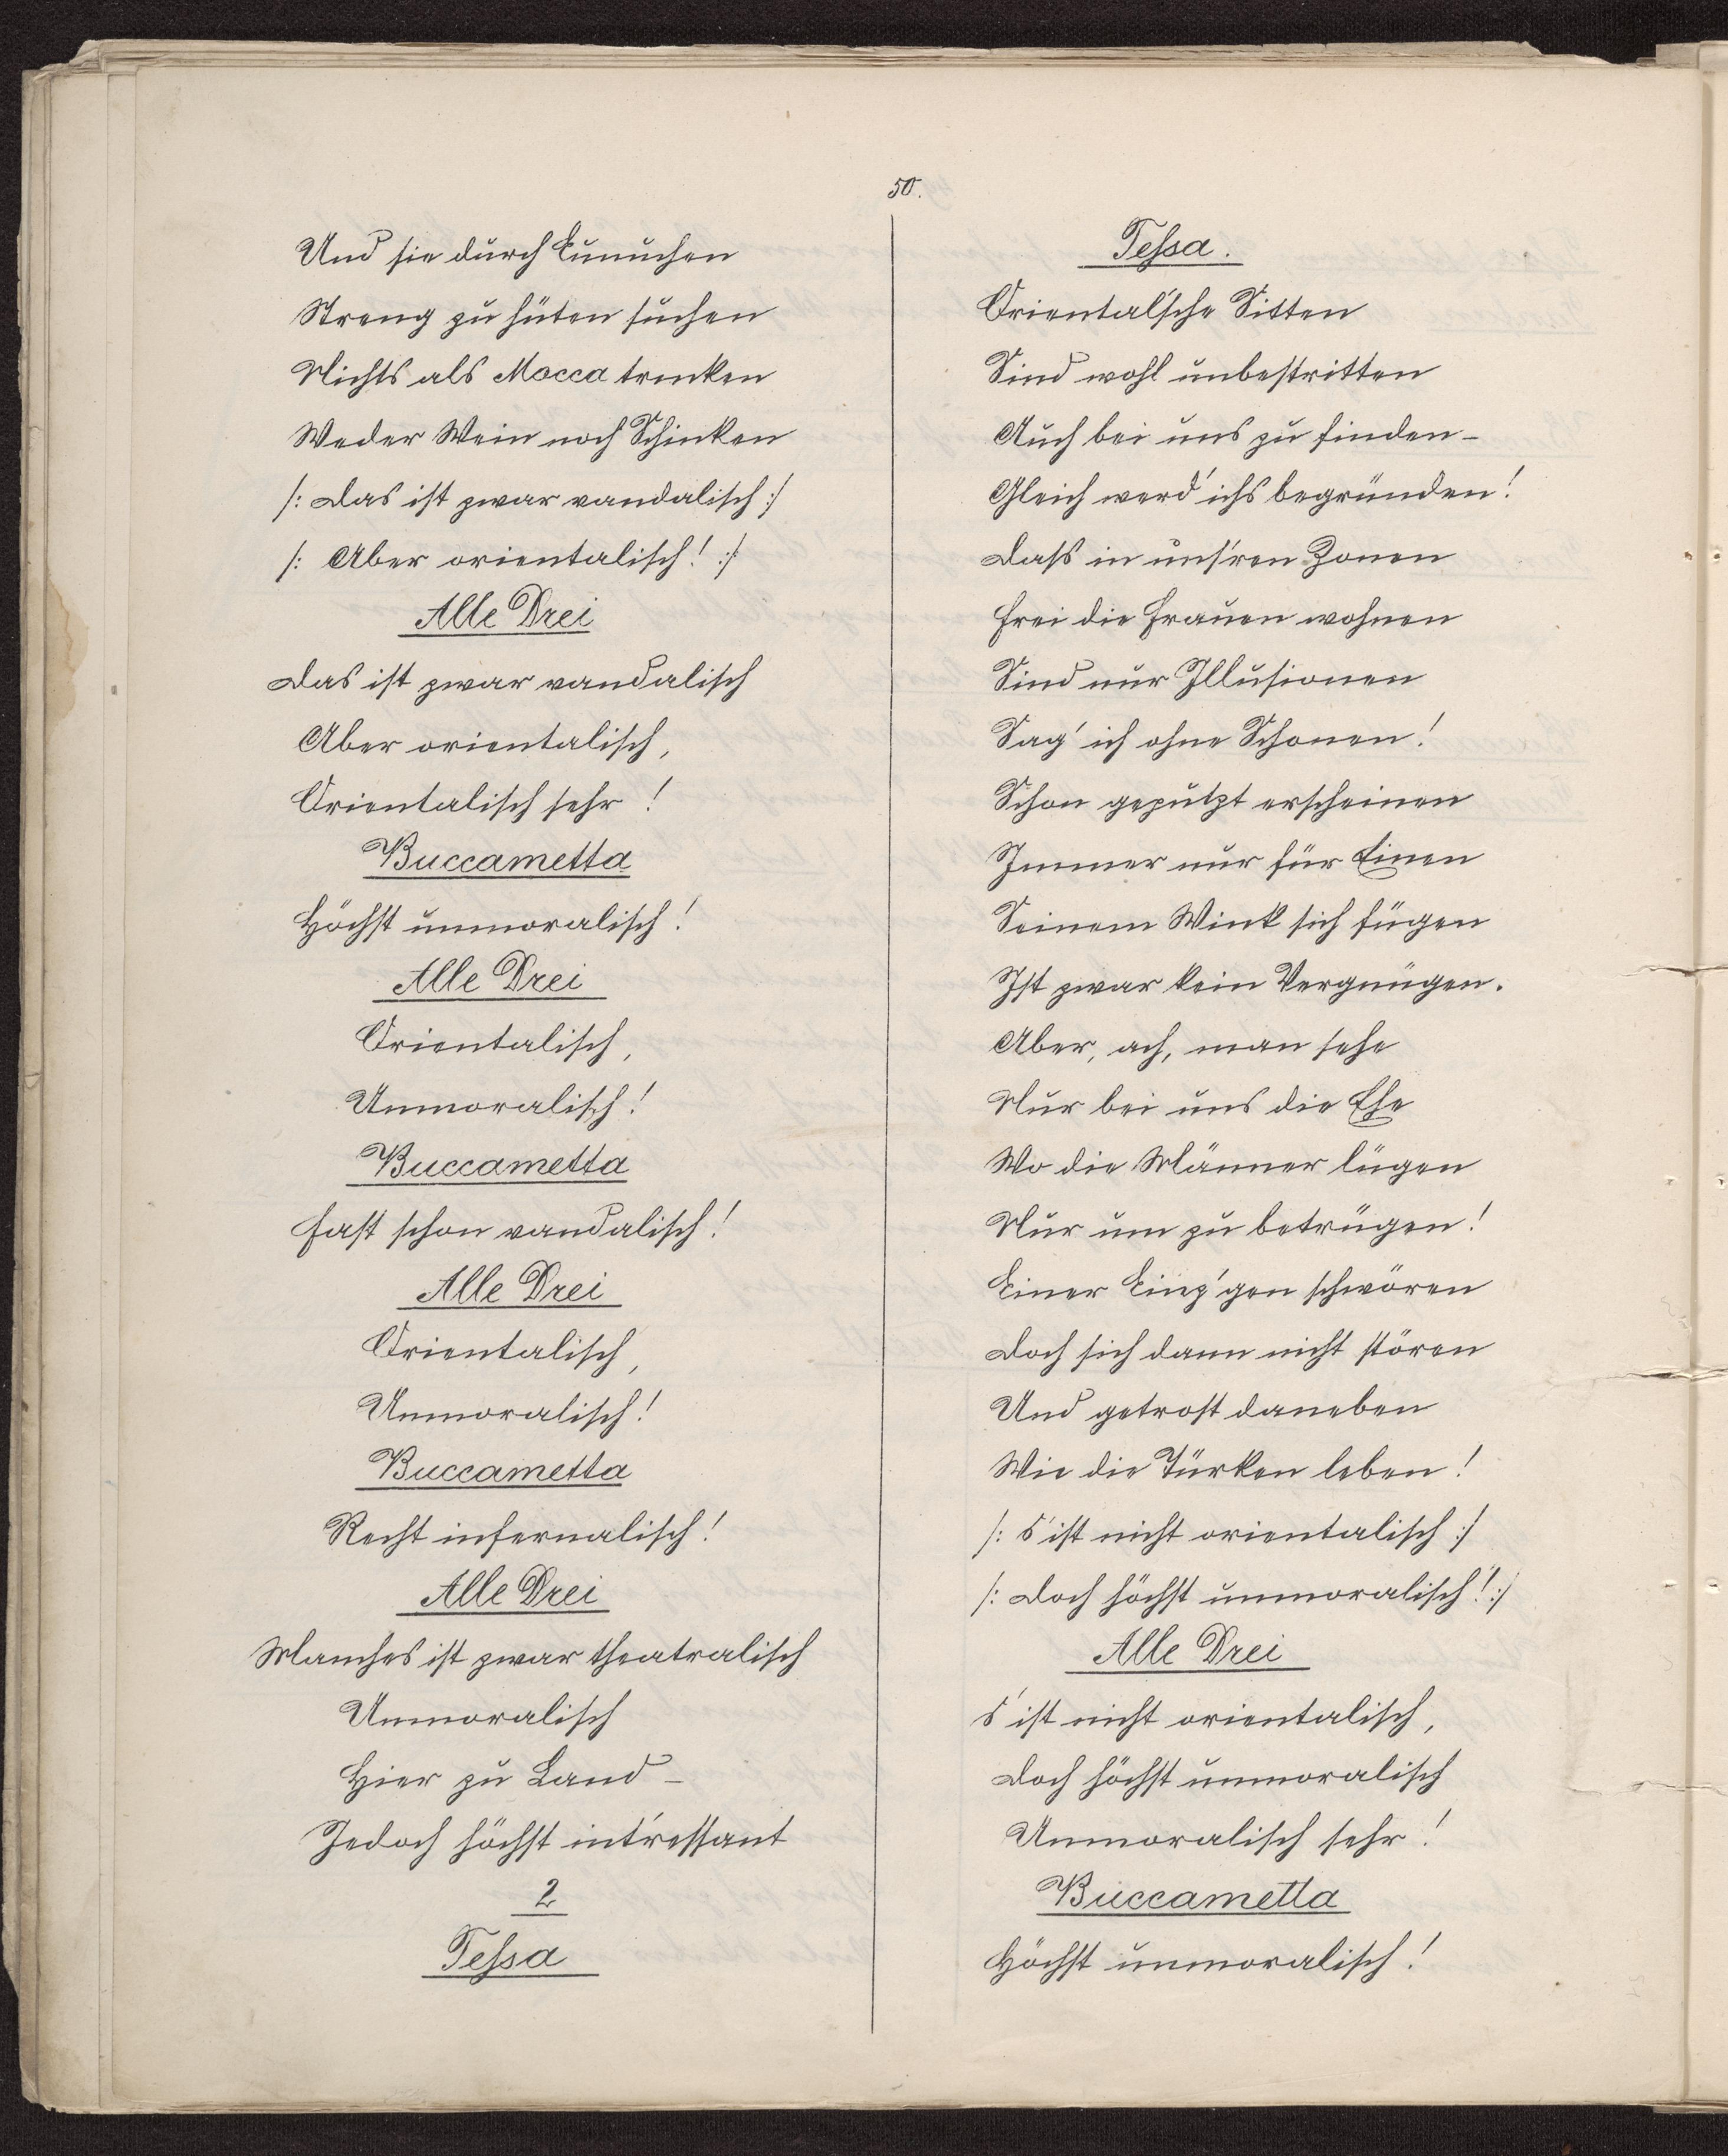 50.
Und sie durch Eunuchen
Streng zu hüten suchen
Nichts als Mocca trinken
Weder Wein noch Schinken
/: Das ist zwar vandalisch :/
/: Aber orientalisch! :/
Alle Drei
Das ist zwar vandalisch
Aber orientalisch,
Orientalisch sehr!
Buccametta
Höchst unmoralisch!
Alle Drei
Orientalisch,
Unmoralisch!
Buccametta
Fast schon vandalisch!
Alle Drei
Orientalisch,
Unmoralisch!
Buccametta
Recht infernalisch!
Alle Drei
Manches ist zwar theatralisch
Unmoralisch
Hier zu Land –
Jedoch höchst int'ressant
2
Tessa
Tessa.
Oriental'sche Sitten
Sind wohl unbestritten
Auch bei uns zu finden –
Gleich werd' ichs begründen!
Dass in uns'ren Zonen
Frei die Frauen wohnen
Sind nur Illusionen
Sag' ich ohne Schonen!
Schon geputzt erscheinen
Immer nur für Einen
Seinem Wink sich fügen
Ist zwar kein Vergnügen.
Aber, ach, man sehe
Nur bei uns die Ehe
Wo die Männer lügen
Nur um zu betrügen!
Einer Einz'gen schwören
Doch sich dann nicht stören
Und getrost daneben
Wie die Türken leben!
/: s' ist nicht orientalisch :/
/: Doch höchst unmoralisch! :/
Alle Drei
s' ist nicht orientalisch,
Doch höchst unmoralisch
Unmoralisch sehr!
Buccametta
Höchst unmoralisch!